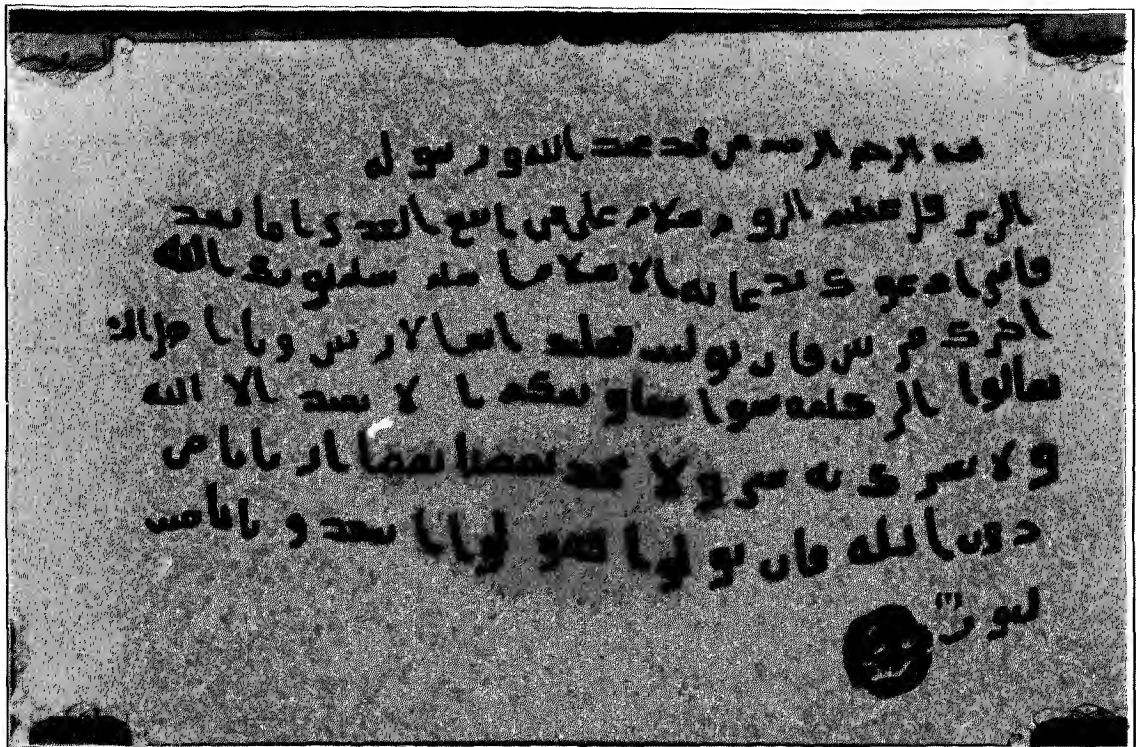 بسم الله الرحمن الرحيم من محمد عبد الله ورسوله
الى هرقل عظيم الروم سلام على من اتبع الهدى اما بعد
فانى ادعوك بدعاية الاسلام اسلم تسلم يوتك الله
اجرك مرتين فان توليت فعليك اثم الاريسيين ويا اهل الكتا
تعالوا الى كلمة سوا بيننا وبينكم ا لا نعبد الا الله
ولا نشرك به شى ولا يتخذ بعضنا بعضا اربابا من
دون الله فان تولوا فقولوا اشهدوا بانا مس
لمون